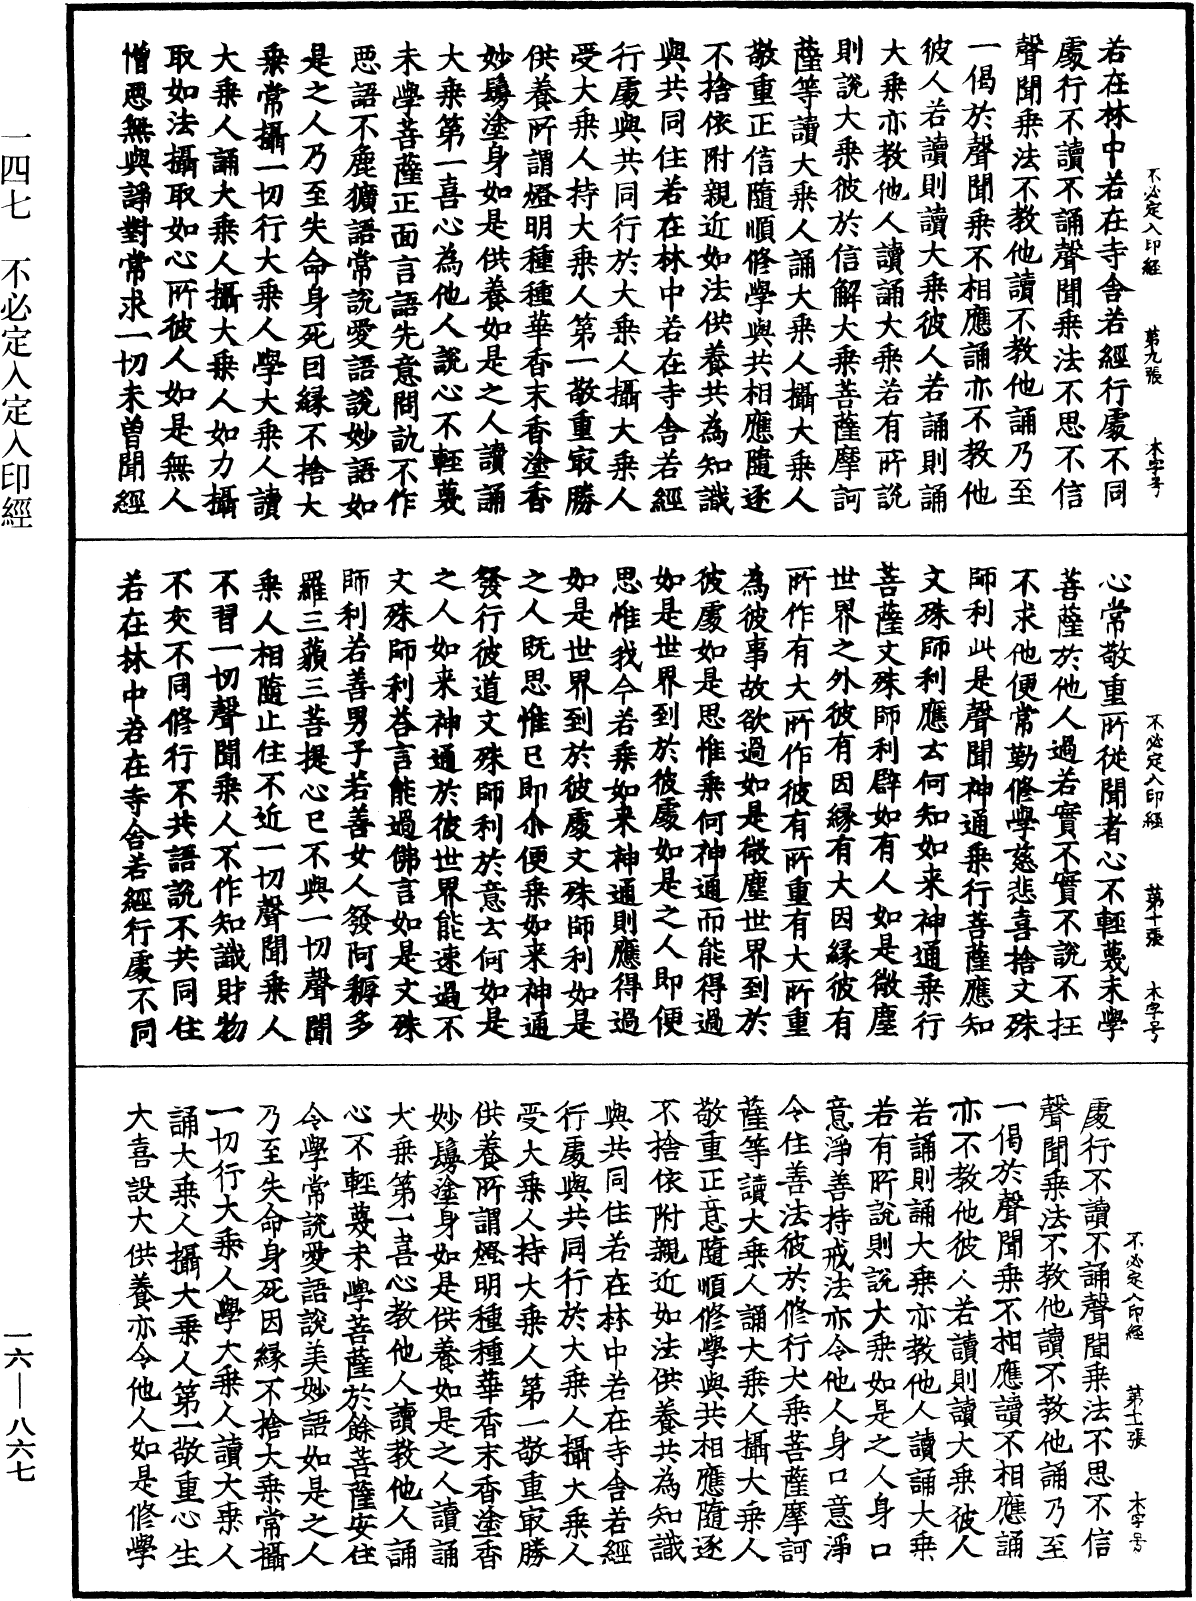 不必定入印經　第九張　木字号
若在林中若在寺舍若經行處不同
處行不讀不誦聲聞乘法不思不信
聲聞乘法不教他讀不教他誦乃至
一偈於聲聞乘不相應誦亦不教他
彼人若讀則讀大乘彼人若誦則誦
大乘亦教他人讀誦大乘若有所說
則說大乘彼於信解大乘菩薩摩訶
薩等讀大乘人誦大乘人攝大乘人
敬重正信隨順修學與共相應隨逐
不捨依附親近如法供養共為知識
與共同住若在林中若在寺舍若經
行處與共同行於大乘人攝大乘人
受大乘人持大乘人第一敬重冣勝
供養所謂燈明種種華香末香塗香
妙鬘塗身如是供養如是之人讀誦
大乘第一喜心為他人說心不輕蔑
未學菩薩正面言語先意問訊不作
惡語不麁獷語常說愛語說妙語如
是之人乃至失命身死因緣不捨大
乘常攝一切行大乘人學大乘人讀
大乘人誦大乘人攝大乘人如力攝
取如法攝取如心所彼人如是無人
憎惡無與諍對常求一切未曾聞經
不必定入印經　第十張　木字号
心常敬重所從聞者心不輕蔑未學
菩薩於他人過若實不實不說不抂
不求他便常勤修學慈悲喜捨文殊
師利此是聲聞神通乘行菩薩應知
文殊師利應云何知如来神通乘行
菩薩文殊師利譬如有人如是微塵
世界之外彼有因緣有大因緣彼有
所作有大所作彼有所重有大所重
為彼事故欲過如是微塵世界到於
彼處如是思惟乘何神通而能得過
如是世界到於彼處如是之人即便
思惟我今若乘如来神通則應得過
如是世界到於彼處文殊師利如是
之人既思惟已即尒便乘如来神通
發行彼道文殊師利於意云何如是
之人如来神通於彼世界能速過不
文殊師利荅言能過佛言如是文殊
師利若善男子若善女人發阿耨多
羅三藐三菩提心已不與一切聲聞
乘人相隨止住不近一切聲聞乘人
不習一切聲聞乘人不作知識財物
不交不同修行不共語說不共同住
若在林中若在寺舍若經行處不同
不必定入印經　第十一張　木字号
處行不讀不誦聲聞乘法不思不信
聲聞乘法不教他讀不教他誦乃至
一偈於聲聞乘不相應讀不相應誦
亦不教他彼人若讀則讀大乘彼人
若誦則誦大乘亦教他人讀誦大乘
若有所說則說大乘如是之人身口
意淨善持戒法亦令他人身口意淨
令住善法彼於修行大乘菩薩摩訶
薩等讀大乘人誦大乘人攝大乘人
敬重正意隨順修學與共相應隨逐
不捨依附親近如法供養共為知識
與共同住若在林中若在寺舍若經
行處與共同行於大乘人攝大乘人
受大乘人持大乘人第一敬重冣勝
供養所謂燈明種種華香末香塗香
妙鬘塗身如是供養如是之人讀誦
大乘第一喜心教他人讀教他人誦
心不輕蔑未學菩薩於餘菩薩安住
令學常說愛語說美妙語如是之人
乃至失命身死因緣不捨大乘常攝
一切行大乘人學大乘人讀大乘人
誦大乘人攝大乘人第一敬重心生
大喜設大供養亦令他人如是修學
一四七　不必定入定入印經
一六—八六七